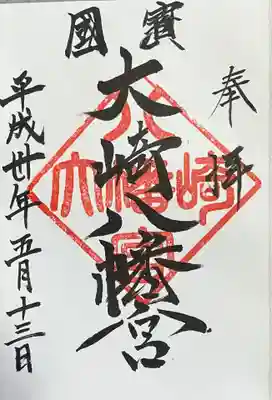 國寳
奉拝
大崎八幡宮
平成卅年五月十三日
大崎八幡宮